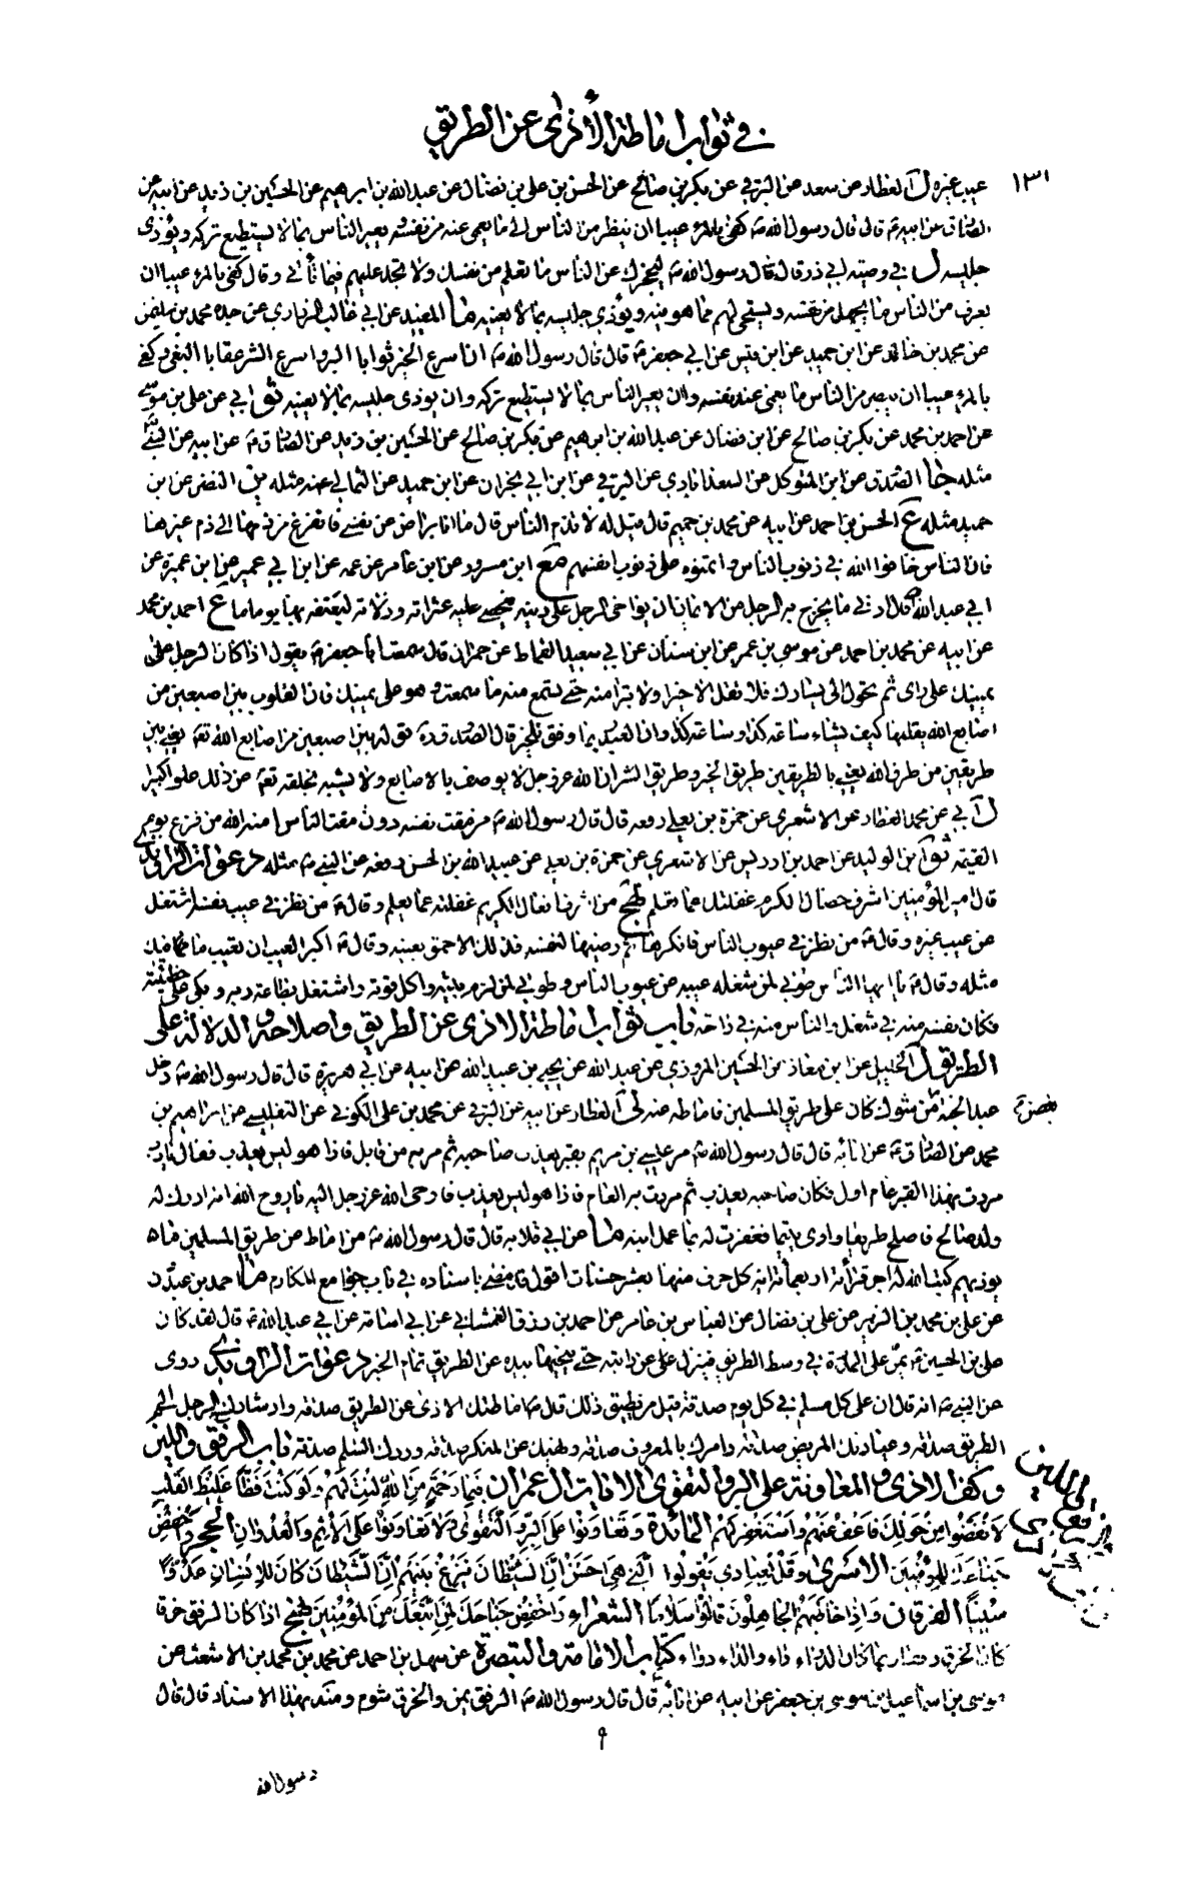 في ثواب اماطة الأذى عن الطريق
١٣١
عيب غيره ل العطار عن سعد عن البرقي عن بكر بن صالح عن الحسن بن علي بن فضال عن عبدالله بن ابرهيم عن الحسين بن زيد عن ابيه عن
الصادق عن ابيه قال قال رسول الله ص كفى بالمرء عيبا ان ينظر من الناس الى ما يعمى عنه من نفسه ويعير الناس بما لا يستطيع تركه ويؤذي
جليسه ل في وصيته ابي ذر قال قال رسول الله ص ليحجزك عن الناس ما تعلم من نفسك ولا تجد عليهم فيما تأتي وقال كفى بالمرء عيبا ان
يعرف من الناس ما يجهل من نفسه ويستحيي لهم مما هو فيه ويؤذي جليسه بما لا يعنيه ما المفيد عن ابي غالب الزراري عن جده محمد بن سليمن
عن محمد بن خالد عن ابن حميد عن ابن قيس عن ابي جعفر ع قال قال رسول الله ص ان اسرع الخير ثوابا البر واسرع الشر عقابا البغي وكفى
بالمرء عيبا ان يبصر من الناس ما يعمى عنه نفسه وان يعير الناس بما لا يستطيع تركه وان يوذي جليسه بما لا يعنيه ثو ابي عن علي بن موسى
عن احمد بن محمد عن بكر بن صالح عن ابن فضال عن عبدالله بن ابرهيم عن بكر بن صالح عن الحسين بن زيد عن الصادق ع عن ابيه عن النبي
مثله جا الصدوق عن ابن المتوكل عن السعدابادي عن البرقي عن ابن ابي نجران عن ابن حميد عن الثمالي عنه مثله ين النضر عن ابن
حميد مثله ع الحسن بن احمد عن ابيه عن محمد بن قال قيل له لا تذم الناس قال ما انا براض عن نفسي فاتفرغ من ذمها الى ذم غيرها
فان الناس خافوا الله في ذنوب الناس وائتمنوه على ذنوب انفسهم مع ابن مسرور عن ابن عامر عن عمه عن ابن ابي عمير عن ابن عميرة عن
ابي عبد الله ع قال ادنى ما يخرج به الرجل من الايمان ان يواخي الرجل على دينه فيحصي عليه عثراته وزلاته ليعنفه بها يوما ما ع احمد بن محمد
عن ابيه عن محمد بن احمد عن موسى بن عمر عن ابن سنان عن ابي سعيد القماط عن حمران قال سمعت ابا جعفر ع يقول اذا كان الرجل على
يمينك على راى ثم تحول الى يسارك فلا تقل الا خيرا ولا تبرا منه حتى تسمع منه ما سمعت وهو على يمينك فان القلوب بين اصبعين من
اصابع الله يقلبها كيف يشاء ساعة كذا وساعة كذا وان العبد ربما وفق للخير قال الصدوق قده قوله بين اصبعين من اصابع الله تعالى يعني بين
طريقين من طرق الله يعني بالطريقين طريق الخير وطريق الشر ان الله عز وجل لا يوصف بالاصابع ولا يشبه بخلقه تعالى عن ذلك علوا كبيرا
ل ابي عن محمد العطار عن الاشعري عن حمزة بن يعلى رفعه قال قال رسول الله ص من مقت نفسه دون مقت الناس امنه الله من فزع يوم
القيمة ثو ابن الوليد عن احمد بن ادريس عن الاشعري عن حمزة بن يعلى عن عبيد الله بن الحسن رفعه عن النبي ص مثله دعوات الراوندي
قال امير المؤمنين اشرف خصال الكرم غفلتك عما تعلم نهج من اشرف افعال الكريم غفلته عما يعلم وقال ع من نظر في عيب نفسه اشتغل
عن عيب غيره وقال ع من نظر في عيوب الناس فانكرها ثم رضيها لنفسه فذلك الاحمق بعينه وقال ع اكبر العيب ان تعيب ما فيك
مثله وقال ع يا ايها الناس طوبى لمن شغله عيبه عن عيوب الناس وطوبى لمن لزم بيته واكل قوته واشتغل بطاعة ربه وبكى على خطيئته
فكان نفسه منه في شغل والناس منه في راحة باب ثواب اماطة الاذى عن الطريق واصلاحه والدلالة على
الطريق ل الخليل عن ابن معاذ عن الحسين المروزي عن عبد الله عن يحيى بن عبيد الله عن ابيه عن ابي هريرة قال قال رسول الله ص دخل
عبد الجنة من شوك كان على طريق المسلمين فاماطه عنه لى العطار عن ابيه عن البرقي عن محمد بن علي الكوفي عن التفليسي عن ابراهيم بن
محمد عن الصادق ع عن ابائه قال قال رسول الله ص مر عيسى بن مريم بقبر يعذب صاحبه ثم مر به من قابل فاذا هو ليس يعذب فقال يا رب
مررت بهذا القبر عام اول فكان صاحبه يعذب ثم مررت به العام فاذا هو ليس يعذب فاوحى الله عز وجل اليه يا روح الله انه ادرك له
ولد صالح فاصلح طريقا واوى يتيما فغفرت له بما عمل ابنه ما عن ابي قلابه قال قال رسول الله ص من اماط عن طريق المسلمين ما
يوذيهم كتب الله له اجر قراءة اربعمائة اية كل حرف منها بعشر حسنات اقول قد مضى باسناده في باب جوامع المكارم ما احمد بن عبدون
عن علي بن محمد بن الزبير عن علي بن فضال عن العباس بن عامر عن احمد بن رزق الغمشاني عن ابي اسامة عن ابي عبد الله ع قال لقد كان
علي بن الحسين ع يمر على المدرة في وسط الطريق فينزل عن دابته حتى ينحيها بيده عن الطريق تمام الخبر دعوات الراوندي روى
عن النبي ص انه قال ان على كل مسلم في كل يوم صدقة قيل من يطيق ذلك قال ص اماطتك الاذى عن الطريق صدقة وارشادك الرجل الى
الطريق صدقة وعيادتك المريض صدقة وامرك بالمعروف صدقة ونهيك عن المنكر صدقة وردك السلم صدقة باب الرفق واللين
وكف الاذى والمعاونة على البر والتقوى الايات ال عمران فَبِمَا رَحْمَةٍ مِنَ اللهِ لِنْتَ لَهُمْ وَلَوْ كُنْتَ فَظّاً غَلِيظَ القَلْبِ
لَانْفَضُّوا مِنْ حَوْلِكَ فَاعْفُ عَنْهُمْ وَاسْتَغْفِرْ لَهُمْ المائدة وَتَعَاوَنُوا عَلَى البِرِّ وَالتَّقْوَى وَلَا تَعَاوَنُوا عَلَى الْإِثْمِ وَالْعُدْوَانِ الحجر وَاخْفِضْ
جَنَاحَكَ لِلْمُؤْمِنِينَ الاسرى وَقُلْ لِعِبَادِي يَقُولُوا الَّتِي هِيَ احْسَنُ إِنَّ الشَّيْطَانَ يَنْزَغُ بَيْنَهُمْ إِنَّ الشَّيْطَانَ كَانَ لِلْإِنْسَانِ عَدُوّاً
مُبِيناً الفرقان وَإِذَا خَاطَبَهُمُ الْجَاهِلُونَ قَالُوا سَلَاماً الشعراء وَاخْفِضْ جَنَاحَكَ لِمَنِ اتَّبَعَكَ مِنَ الْمُؤْمِنِينَ نهج اذا كان الرفق خرقا
كان الخرق رفقا ربما كان الدواء داء والداء دواء كتاب الامامة والتبصرة عن سهل بن احمد عن محمد بن محمد بن الاشعث عن
موسى بن اسماعيل بن موسى بن جعفر عن ابيه عن ابائه قال قال رسول الله ص الرفق يمن والخرق شوم ومنه بهذا الاسناد قال قال
٩
رسول الله